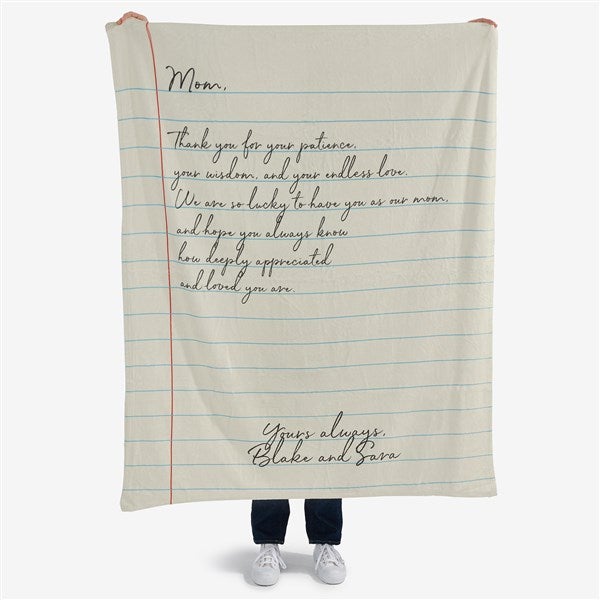 Mom,
Thank you for your patience,
your wisdom, and your endless love.
We are so lucky to have you as our mom,
and hope you always know
how deeply appreciated
and loved you are.
Yours always,
Blake and Sara